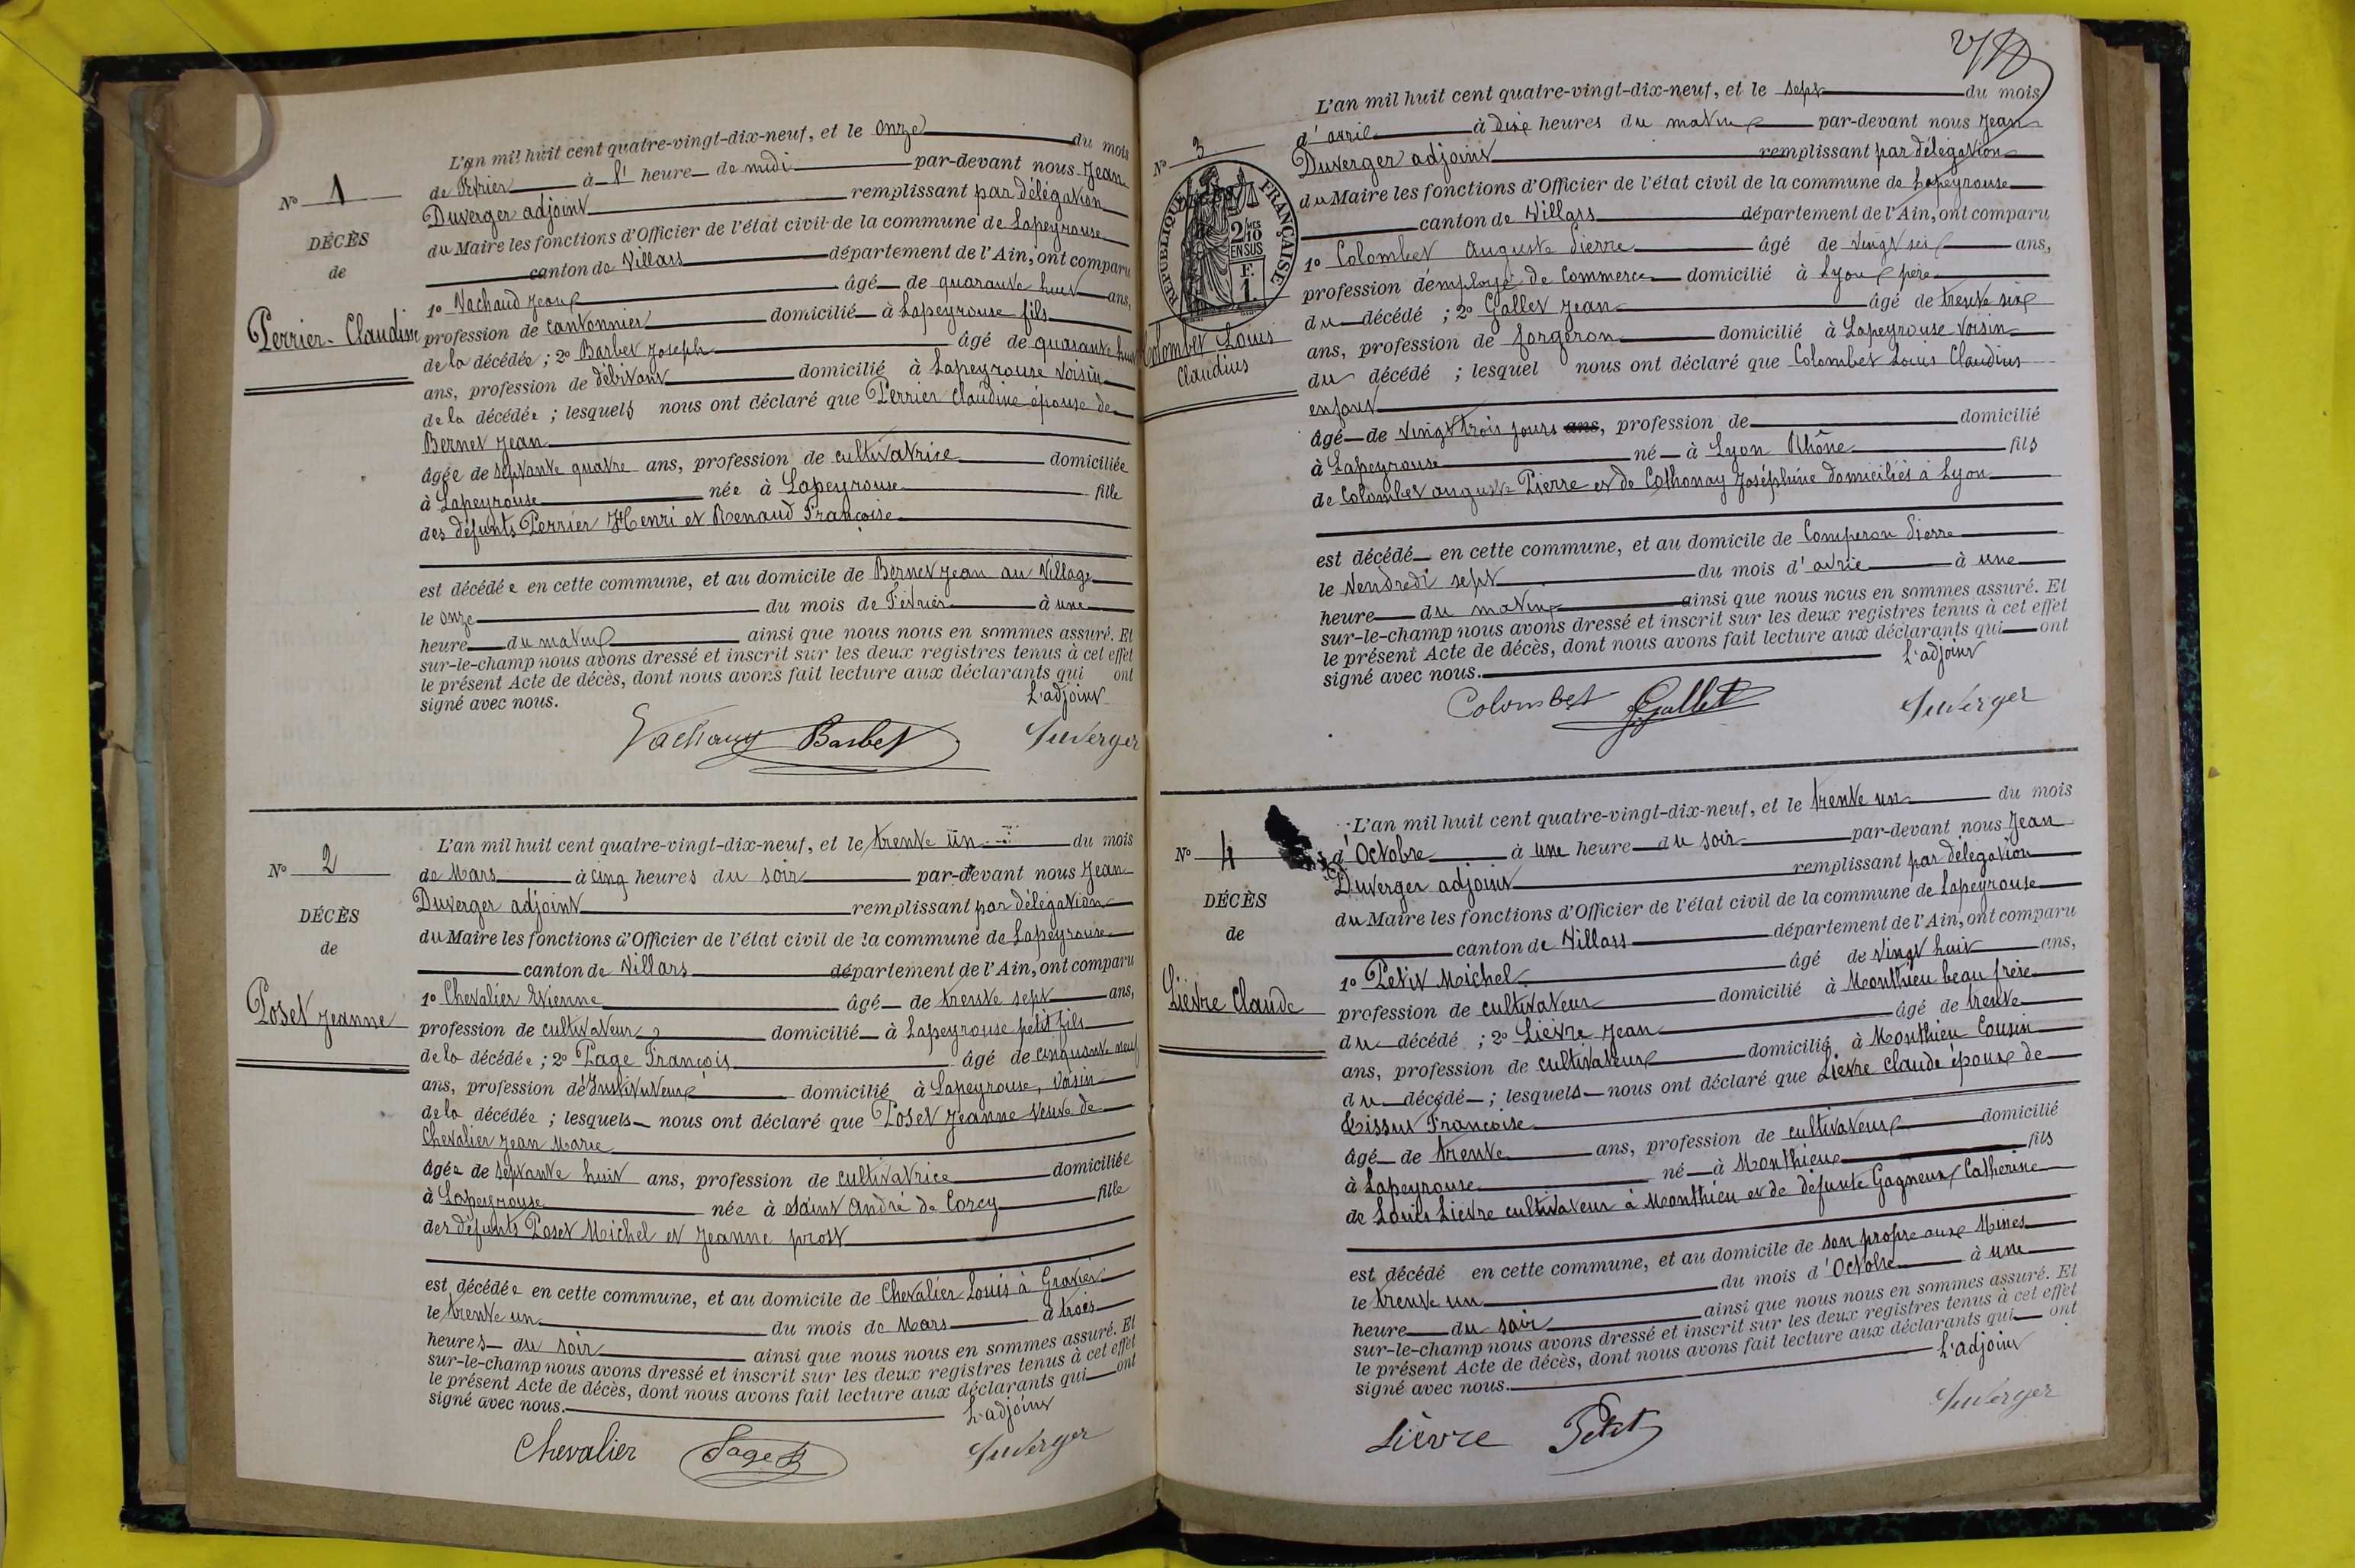 L'an mil huit cent quatre-vingt-dix-neuf, et le onze du mois
de Février à l' heure de midi par-devant nous Jean
Duverger adjoint remplissant par délégation
du Maire les fonctions d'Officier de l'état civil de la commune de Lapeyrouse
canton de Villars département de l'Ain, ont comparu
1º Vachaud Jean âgé de quarante huit ans,
profession de cantonnier domicilié à Lapeyrouse fils
de la décédée ; 2º Barbet Joseph âgé de quarante huit
ans, profession de débitant domicilié à Lapeyrouse voisin
de la décédée ; lesquels nous ont déclaré que Perrier Claudine épouse de
Bernet Jean
âgée de septante quatre ans, profession de cultivatrice domiciliée
à Lapeyrouse née à Lapeyrouse fille
des défunts Perrier Henri et Renaud Françoise
est décédée en cette commune, et au domicile de Bernet Jean au Village
le onze du mois de Février à une
heure du matin ainsi que nous nous en sommes assuré. Et
sur-le-champ nous avons dressé et inscrit sur les deux registres tenus à cet effet
le présent Acte de décès, dont nous avons fait lecture aux déclarants qui ont
signé avec nous. L'adjoint
Vachaud Barbet Duverger
Nº 1
DÉCÈS
de
Perrier Claudine
L'an mil huit cent quatre-vingt-dix-neuf, et le trente un du mois
de Mars à cinq heures du soir par-devant nous Jean
Duverger adjoint remplissant par délégation
du Maire les fonctions d'Officier de l'état civil de la commune de Lapeyrouse
canton de Villars département de l'Ain, ont comparu
1º Chevalier Etienne âgé de trente sept ans,
profession de cultivateur domicilié à Lapeyrouse petit fils
de la décédée ; 2º Page François âgé de cinquante neuf
ans, profession de Instituteur domicilié à Lapeyrouse, voisin
de la décédée ; lesquels nous ont déclaré que Poset Jeanne veuve de
Chevalier Jean Marie
âgée de septante huit ans, profession de cultivatrice domiciliée
à Lapeyrouse née à Saint André de Corcy fille
des défunts Poset Michel et Jeanne prost
est décédée en cette commune, et au domicile de Chevalier Louis à Gravier
le trente un du mois de Mars à trois
heures du soir ainsi que nous nous en sommes assuré. Et
sur-le-champ nous avons dressé et inscrit sur les deux registres tenus à cet effet
le présent Acte de décès, dont nous avons fait lecture aux déclarants qui ont
signé avec nous. L'adjoint
Chevalier Page Duverger
Nº 2
DÉCÈS
de
Poset Jeanne
L'an mil huit cent quatre-vingt-dix-neuf, et le sept du mois
d'avril à dix heures du matin par-devant nous Jean
Duverger adjoint remplissant par délégation
du Maire les fonctions d'Officier de l'état civil de la commune de Lapeyrouse
canton de Villars département de l'Ain, ont comparu
1º Colombet Auguste Pierre âgé de vingt six ans,
profession d'employé de Commerce domicilié à Lyon père
du décédé ; 2º Gallet Jean âgé de trente six
ans, profession de forgeron domicilié à Lapeyrouse voisin
du décédé ; lesquel nous ont déclaré que Colombet Louis Claudius
enfant
âgé de vingt trois jours ans, profession de domicilié
à Lapeyrouse né à Lyon Rhône fils
de Colombet auguste Pierre et de Cothonay Joséphine domiciliés à Lyon
est décédé en cette commune, et au domicile de Comperon Pierre
le vendredi sept du mois d'avril à une
heure du matin ainsi que nous nous en sommes assuré. Et
sur-le-champ nous avons dressé et inscrit sur les deux registres tenus à cet effet
le présent Acte de décès, dont nous avons fait lecture aux déclarants qui ont
signé avec nous. L'adjoint
Colombet Gallet Duverger
Nº 3
RÉPUBLIQUE FRANÇAISE
2/10 MES
EN SUS
F.
1.
Colombet Louis
Claudius
L'an mil huit cent quatre-vingt-dix-neuf, et le trente un du mois
d'Octobre à une heure du soir par-devant nous Jean
Duverger adjoint remplissant par délégation
du Maire les fonctions d'Officier de l'état civil de la commune de Lapeyrouse
canton de Villars département de l'Ain, ont comparu
1º Petit Michel âgé de vingt huit ans,
profession de cultivateur domicilié à Monthieu beau frère
du décédé ; 2º Lièvre Jean âgé de trente
ans, profession de cultivateur domicilié à Monthieu Cousin
du décédé ; lesquels nous ont déclaré que Lièvre Claude époux de
Françoise
âgé de trente ans, profession de cultivateur domicilié
à Lapeyrouse né à Monthieux fils
de Louis Lièvre cultivateur à Monthieu et de défunte Gagneux Catherine
est décédé en cette commune, et au domicile de son propre aux Mines
le trente un du mois d'Octobre à une
heure du soir ainsi que nous nous en sommes assuré. Et
sur-le-champ nous avons dressé et inscrit sur les deux registres tenus à cet effet
le présent Acte de décès, dont nous avons fait lecture aux déclarants qui ont
signé avec nous. L'adjoint
Lièvre Petit Duverger
Nº 4
DÉCÈS
de
Lièvre Claude